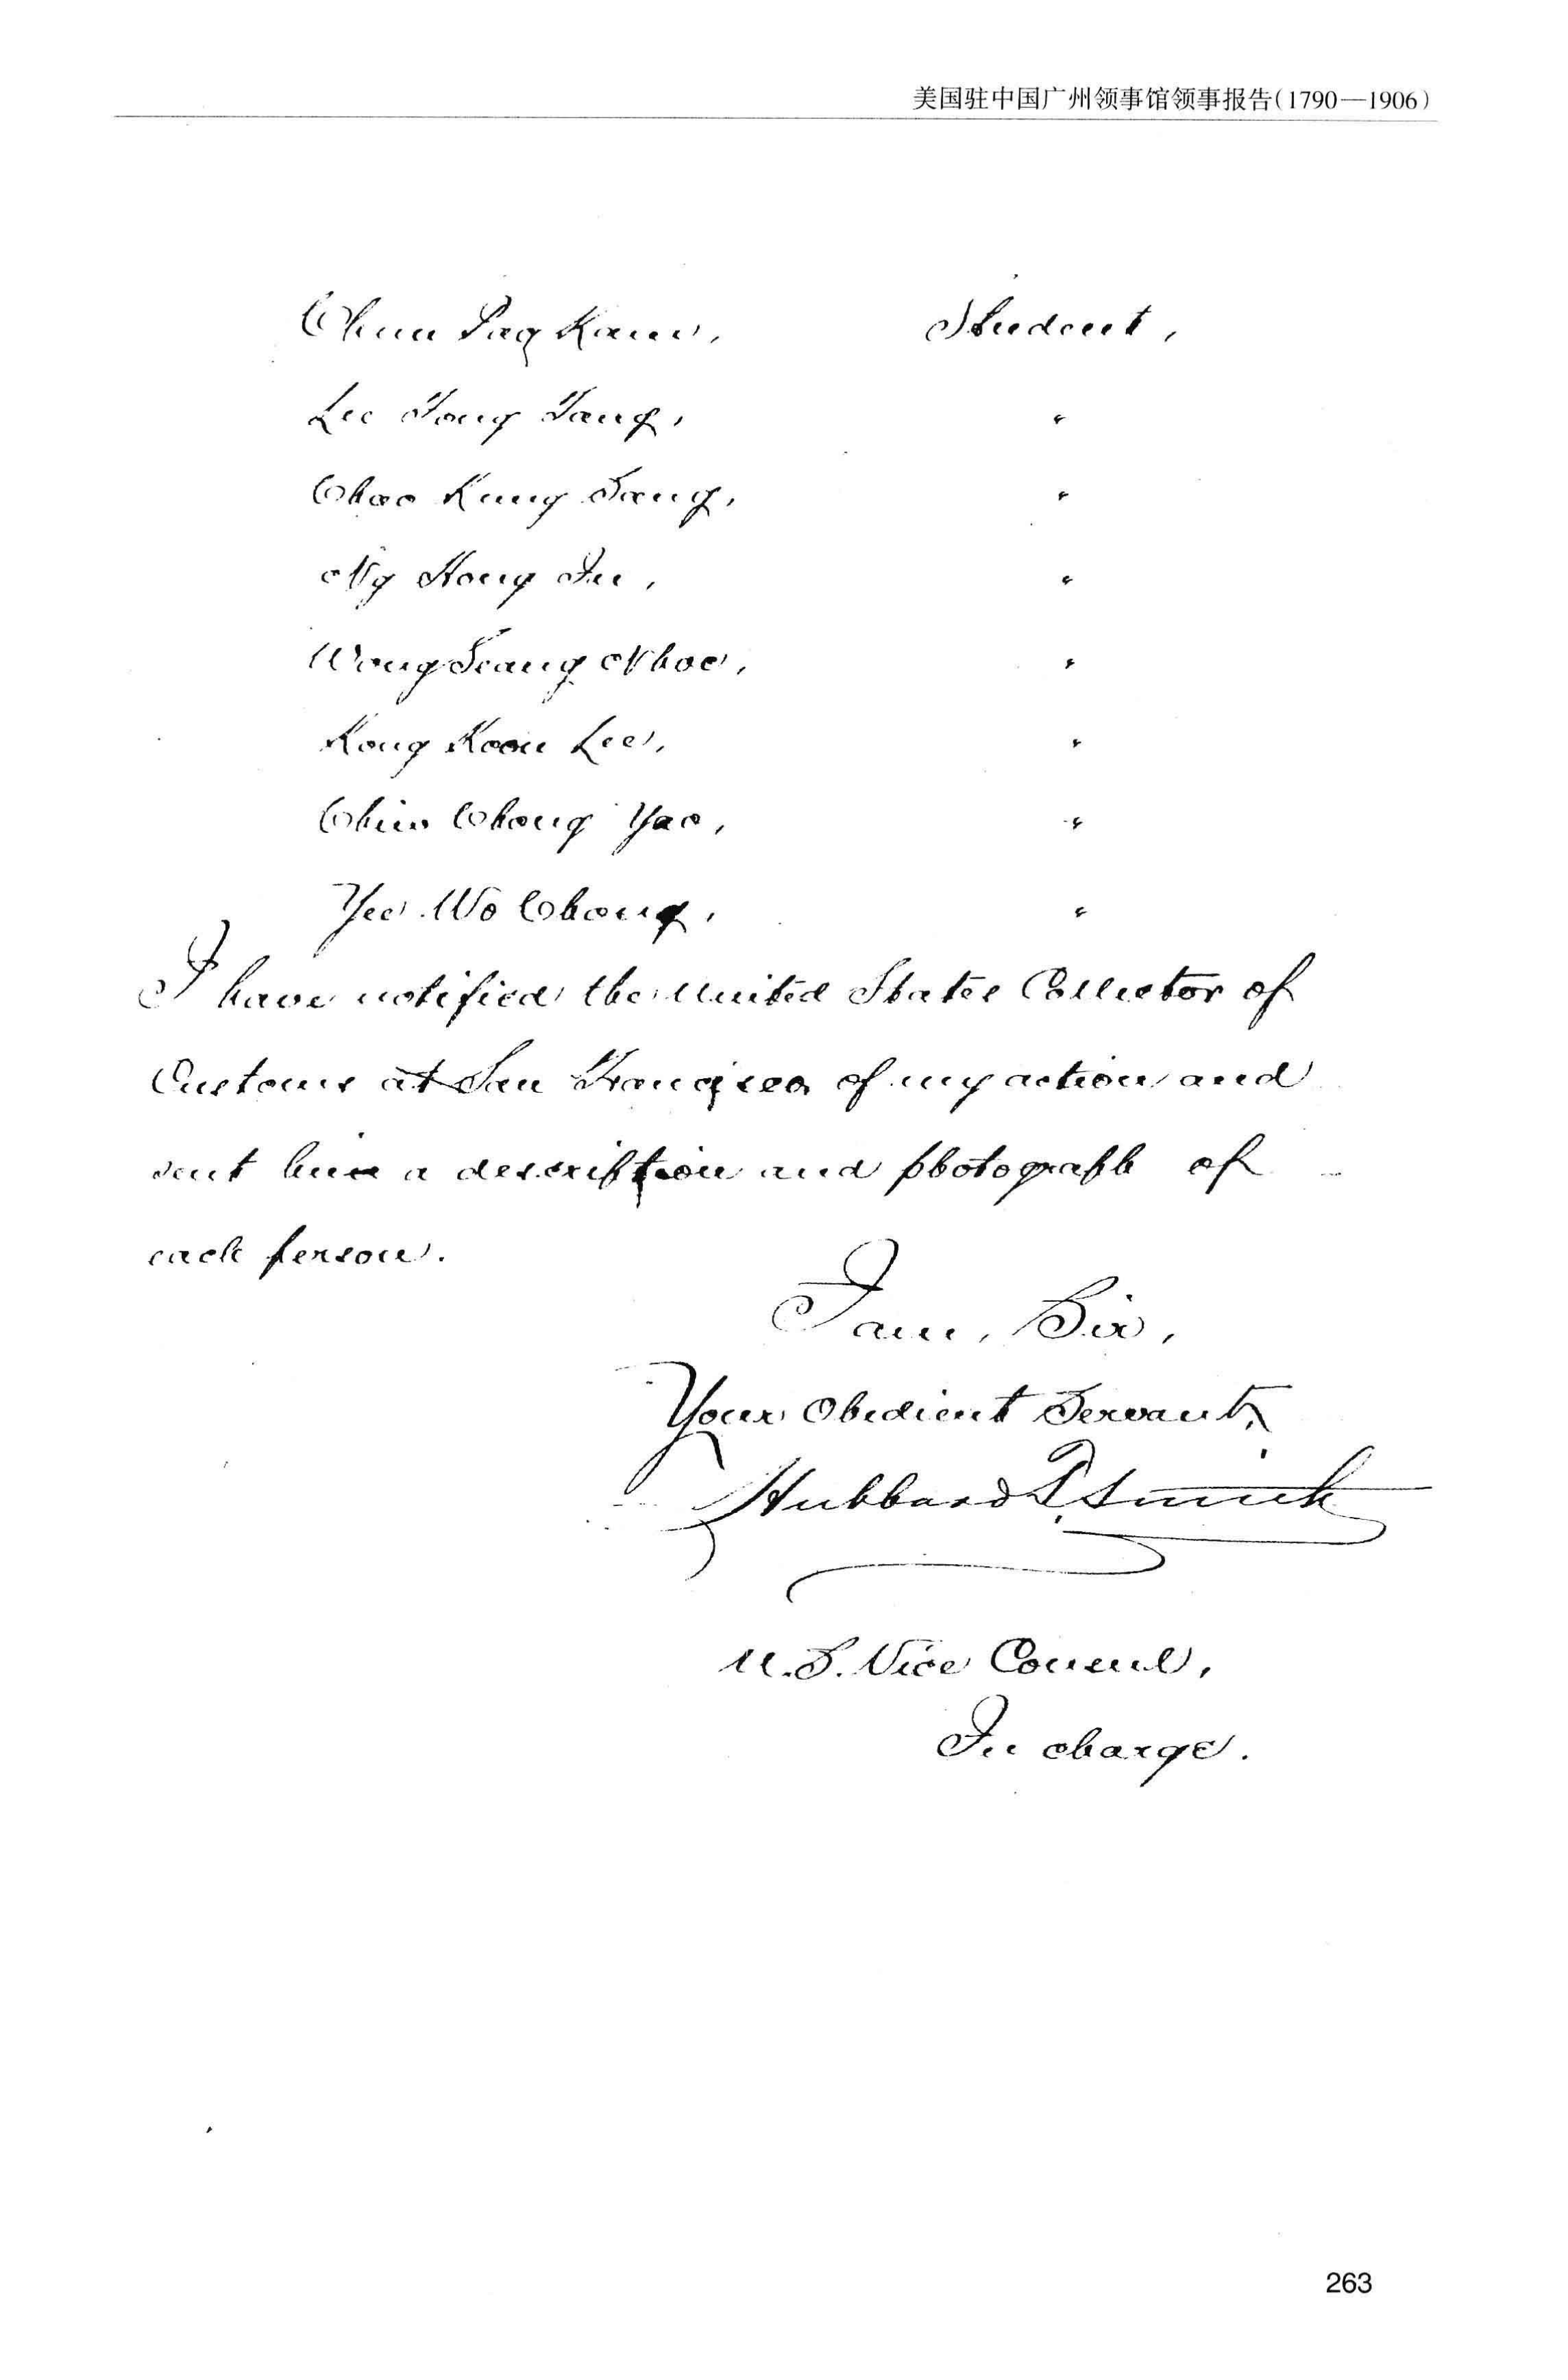 美国驻中国广州领事馆领事报告(1790—1906)
Chun Kam, Student,
Lee Tong Tang, "
Chao Kung Tang, "
Ng Hong Fu, "
Wong Nhoe, "
Kong Koon Lee, "
Chin Chong Yao, "
Yee Wo Chong, "
I have notified the United States Collector of
Customs at San Francisco of my action and
sent him a description and photograph of
each person.
I am, Sir,
Your Obedient Servant,
Hubbard T. Smith
U.S. Vice Consul,
In charge.
263